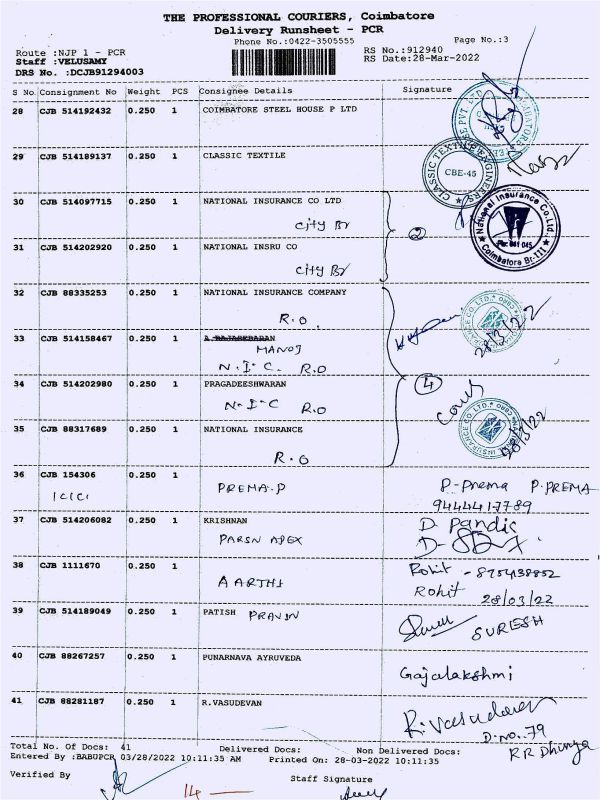 THE PROFESSIONAL COURIERS, Coimbatore
Delivery Runsheet - PCR
Phone No.:0422-3505555
Page No.:3
Route :NJP 1 - PCR
RS No.:912940
Staff :VELUSAMY
RS Date:28-Mar-2022
DRS No. :DCJB91294003
S No Consignment No Weight PCS Consignee Details Signature
28 CJB 514192432 0.250 1 COIMBATORE STEEL HOUSE P LTD
29 CJB 514189137 0.250 1 CLASSIC TEXTILE
CLASSIC TEXTILE ENGINEERS
CBE-45
30 CJB 514097715 0.250 1 NATIONAL INSURANCE CO LTD
City Br
2
National Insurance Co.Ltd.,
Coimbatore Br-III
31 CJB 514202920 0.250 1 NATIONAL INSRU CO
City Br
32 CJB 88335253 0.250 1 NATIONAL INSURANCE COMPANY
R.O.
28/3/22
33 CJB 514158467 0.250 1 A.RAJASEKARAN
MANOJ
N.I.C. R.O
34 CJB 514202980 0.250 1 PRAGADEESHWARAN
N.I.C R.O
4
35 CJB 88317689 0.250 1 NATIONAL INSURANCE
R.O
28/3/22
36 CJB 154306 0.250 1
ICICI PREMA.P
P-Prema P.PREMA
9444417789
37 CJB 514206082 0.250 1 KRISHNAN
PARSN APEX
D. Pandis
38 CJB 1111670 0.250 1
AARTHI
Rohit - 8754138852
Rohit 28/03/22
39 CJB 514189049 0.250 1 PATISH PRAVIN
SURESH
40 CJB 88267257 0.250 1 PUNARNAVA AYRUVEDA
Gajalakshmi
41 CJB 88281187 0.250 1 R.VASUDEVAN
R.Vasudevan
D.No.79
RR Dhurya
Total No. Of Docs: 41 Delivered Docs: Non Delivered Docs:
Entered By :BABUPCR 03/28/2022 10:11:35 AM Printed On: 28-03-2022 10:11:35
Verified By Staff Signature
14